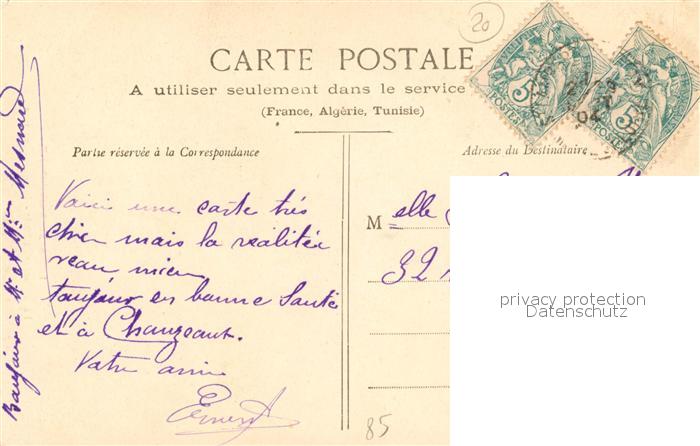 20
CARTE POSTALE
A utiliser seulement dans le service
(France, Algérie, Tunisie)
Partie réservée à la Correspondance
Adresse du Destinataire
Voici une carte très
chien mais la realitée
veau mieu
toujour en bonne Santé
et à
Votre ami
Ernest
Bonjour à Mr et Mme
M elle
32
privacy protection
Datenschutz
85
5
POSTES
5
POSTES
04